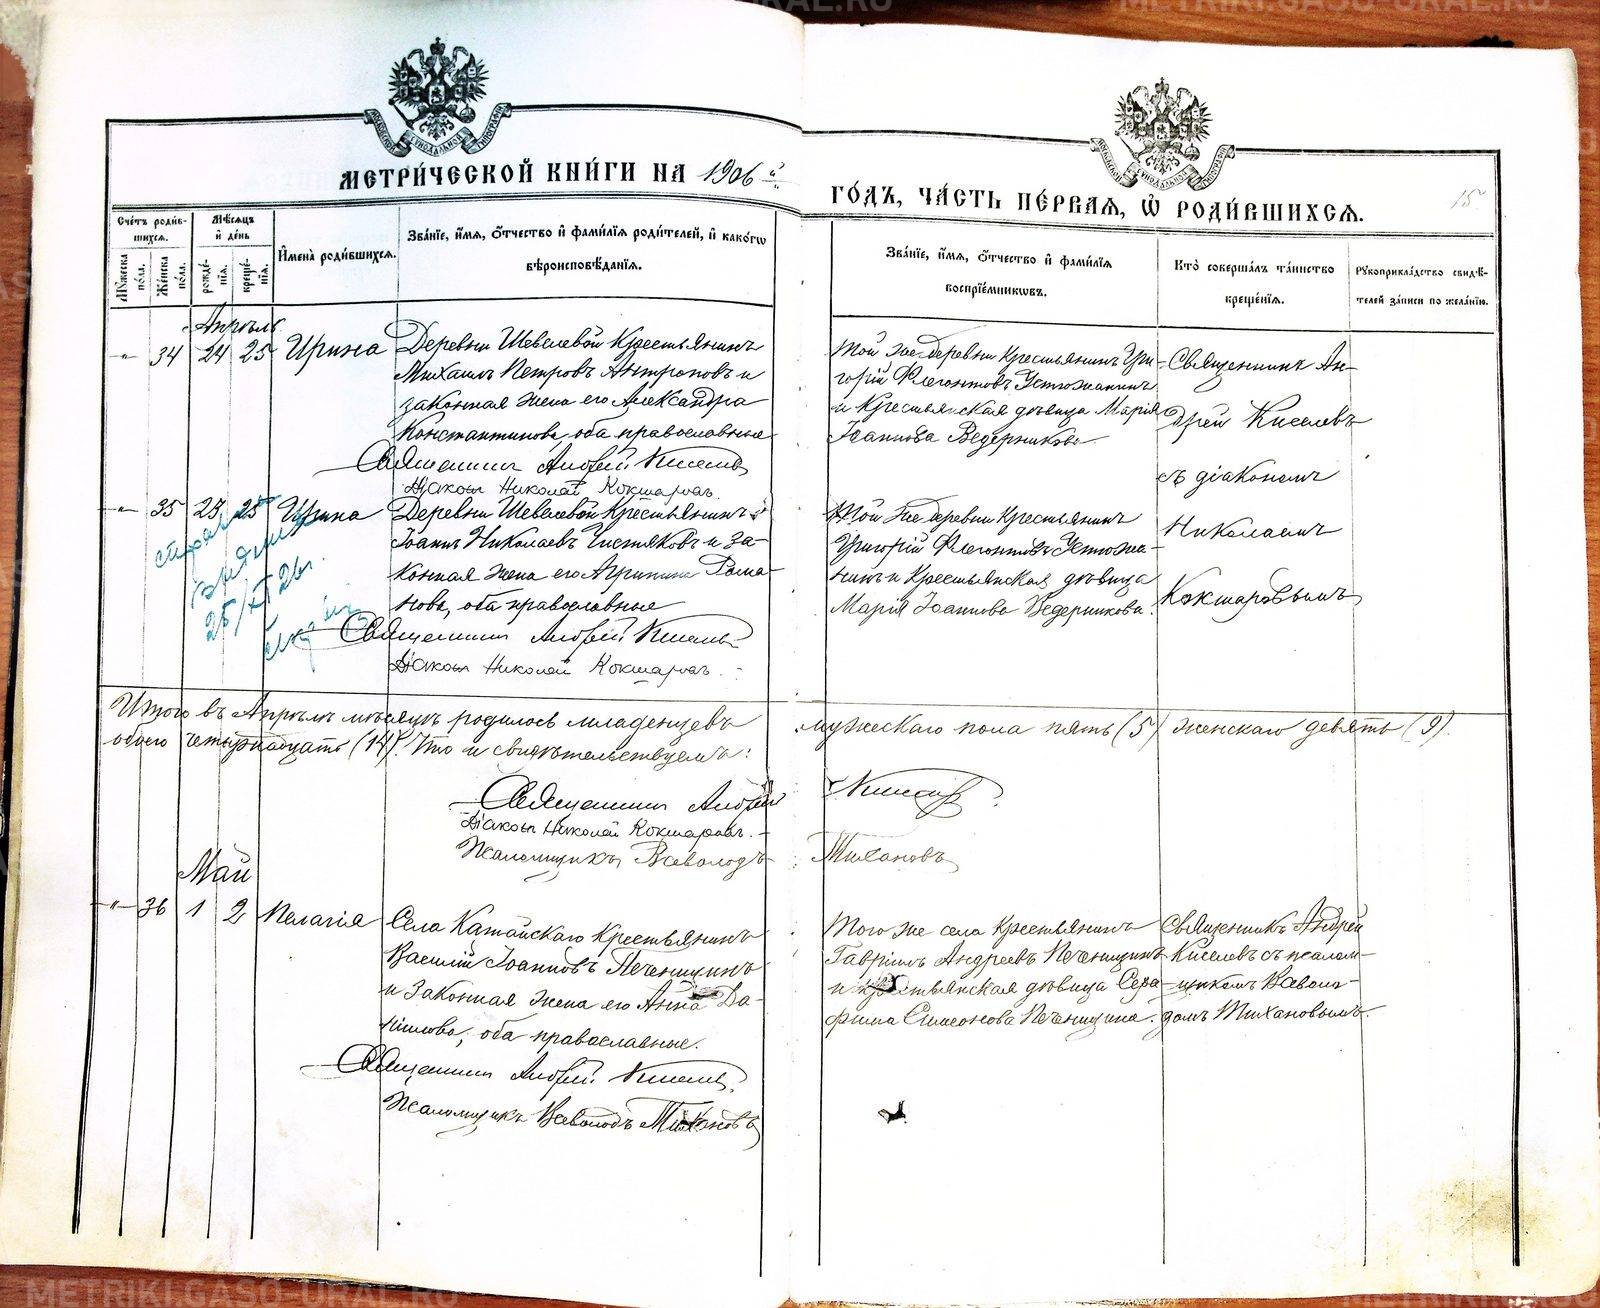 METRIKI.GASO-URAL.RU
METRIKI.GASO-URAL.RU
МЕТРИ́ЧЕСКОЙ КНИ́ГИ НА 1906 й
ГО́ДЪ, ЧА́СТЬ ПЕ́РВАЯ, Ѡ҆ РОДИ́ВШИХСЯ.
15
Сче́тъ роди́в-
шихся.
Мꙋ́жеска по́ла.
Же́нска по́ла.
Мѣ́сяцъ
и҆ де́нь
рожде́-
нїя.
креще́-
нїя.
И҆мена̀ роди́вшихся.
Зва́нїе, и҆́мя, ѻ҆́тчество и҆ фами́лїя роди́телей, и҆ како́гѡ
вѣроисповѣ́данїя.
Зва́нїе, и҆́мя, ѻ҆́тчество и҆ фами́лїя
воспрїе́мниковъ.
Кто̀ соверша́лъ та́инство
креще́нїя.
Рꙋкоприкла́дство свидѣ́-
телей за́писи по жела́нїю.
Апрѣль
-"- 34 24 25 Ирина
Деревни Шевелевой Крестьянинъ
Михаилъ Петровъ Антроповъ и
законная жена его Александра
Константинова, оба православные
Священникъ Андрей Киселевъ
Діаконъ Николай Кокшаровъ.
Той же деревни Крестьянинъ Гри-
горій Флегонтовъ Устюжанинъ
и Крестьянская дѣвица Марія
Іоаннова Ведерникова.
Священникъ Ан-
дрей Киселевъ
съ діакономъ
Николаемъ
Кокшаровымъ
-"- 35 23 25 Ирина
25/
26г.
Деревни Шевелевой Крестьянинъ
Іоаннъ Николаевъ Чистяковъ и за-
конная жена его Агрипина Рома-
нова, оба православные
Священникъ Андрей Киселевъ
Діаконъ Николай Кокшаровъ.
Той же деревни Крестьянинъ
Григорій Флегонтовъ Устюжа-
нинъ и Крестьянская дѣвица
Марія Іоаннова Ведерникова.
Итого въ Апрѣлѣ мѣсяцѣ родилось младенцевъ мужескаго пола пять (5) женскаго девять (9).
обоего четырнадцать (14). Что и свидѣтельствуемъ:
Священникъ Андрей Киселевъ.
Діаконъ Николай Кокшаровъ.
Псаломщикъ Всеволодъ Тихановъ
Май
-"- 36 1 2 Пелагія
Села Катайскаго Крестьянинъ
Василій Іоанновъ Печенищинъ
и законная жена его Анна Да-
нилова, оба православные.
Священникъ Андрей Киселевъ.
Псаломщикъ Всеволодъ Тихановъ
Того же села Крестьянинъ
Гавріилъ Андреевъ Печенищинъ
и крестьянская дѣвица Сера-
фима Симеонова Печенищина.
Священникъ Андрей
Киселевъ съ псалом-
щикомъ Всеволо-
домъ Тихановымъ.
METRIKI.GASO-URAL.RU
METRIKI.GASO-URAL.RU